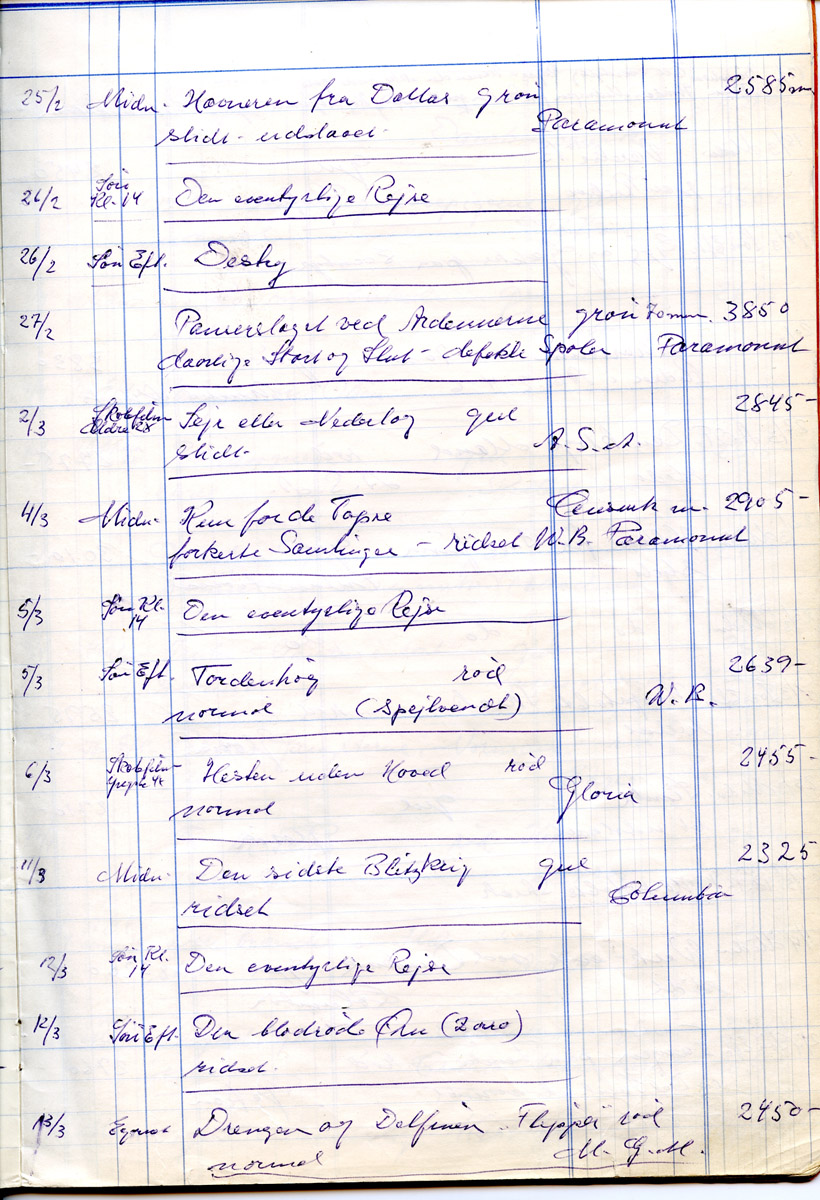 25/2 Midn. Hævneren fra Dallas grøn 2585 m
slidt - udslaaet - Paramount
26/2 Søn Kl. 14 Den eventyrlige Rejse
26/2 Søn Eft. Desky
27/2 Panserslaget ved Ardennerne grøn 70 mm. 3850
daarlige Start og Slut - defekte Spoler Paramount
2/3 Skolefilm Sejr eller Nederlag gul 2845-
slidt - A.S.A.
4/3 Midn. Kun for de Tapre m. 2905-
forkerte Samlinger - ridset W.B. Paramount
5/3 Søn Kl. 14 Den eventyrlige Rejse
5/3 Søn Eft. Tordenhøg rød 2639-
normal (spejlvendt) W.B.
6/3 Skolefilm Hesten uden Hoved rød 2455-
normal Gloria
11/3 Midn. Den sidste Blitzkrig gul 2325
ridset Columbia
12/3 Søn Kl. 14 Den eventyrlige Rejse
12/3 Søn Eft. Den blodrøde Ørn (Zorro)
ridset.
13/3 Drengen og Delfinen - Flipper rød 2450-
normal M.G.M.